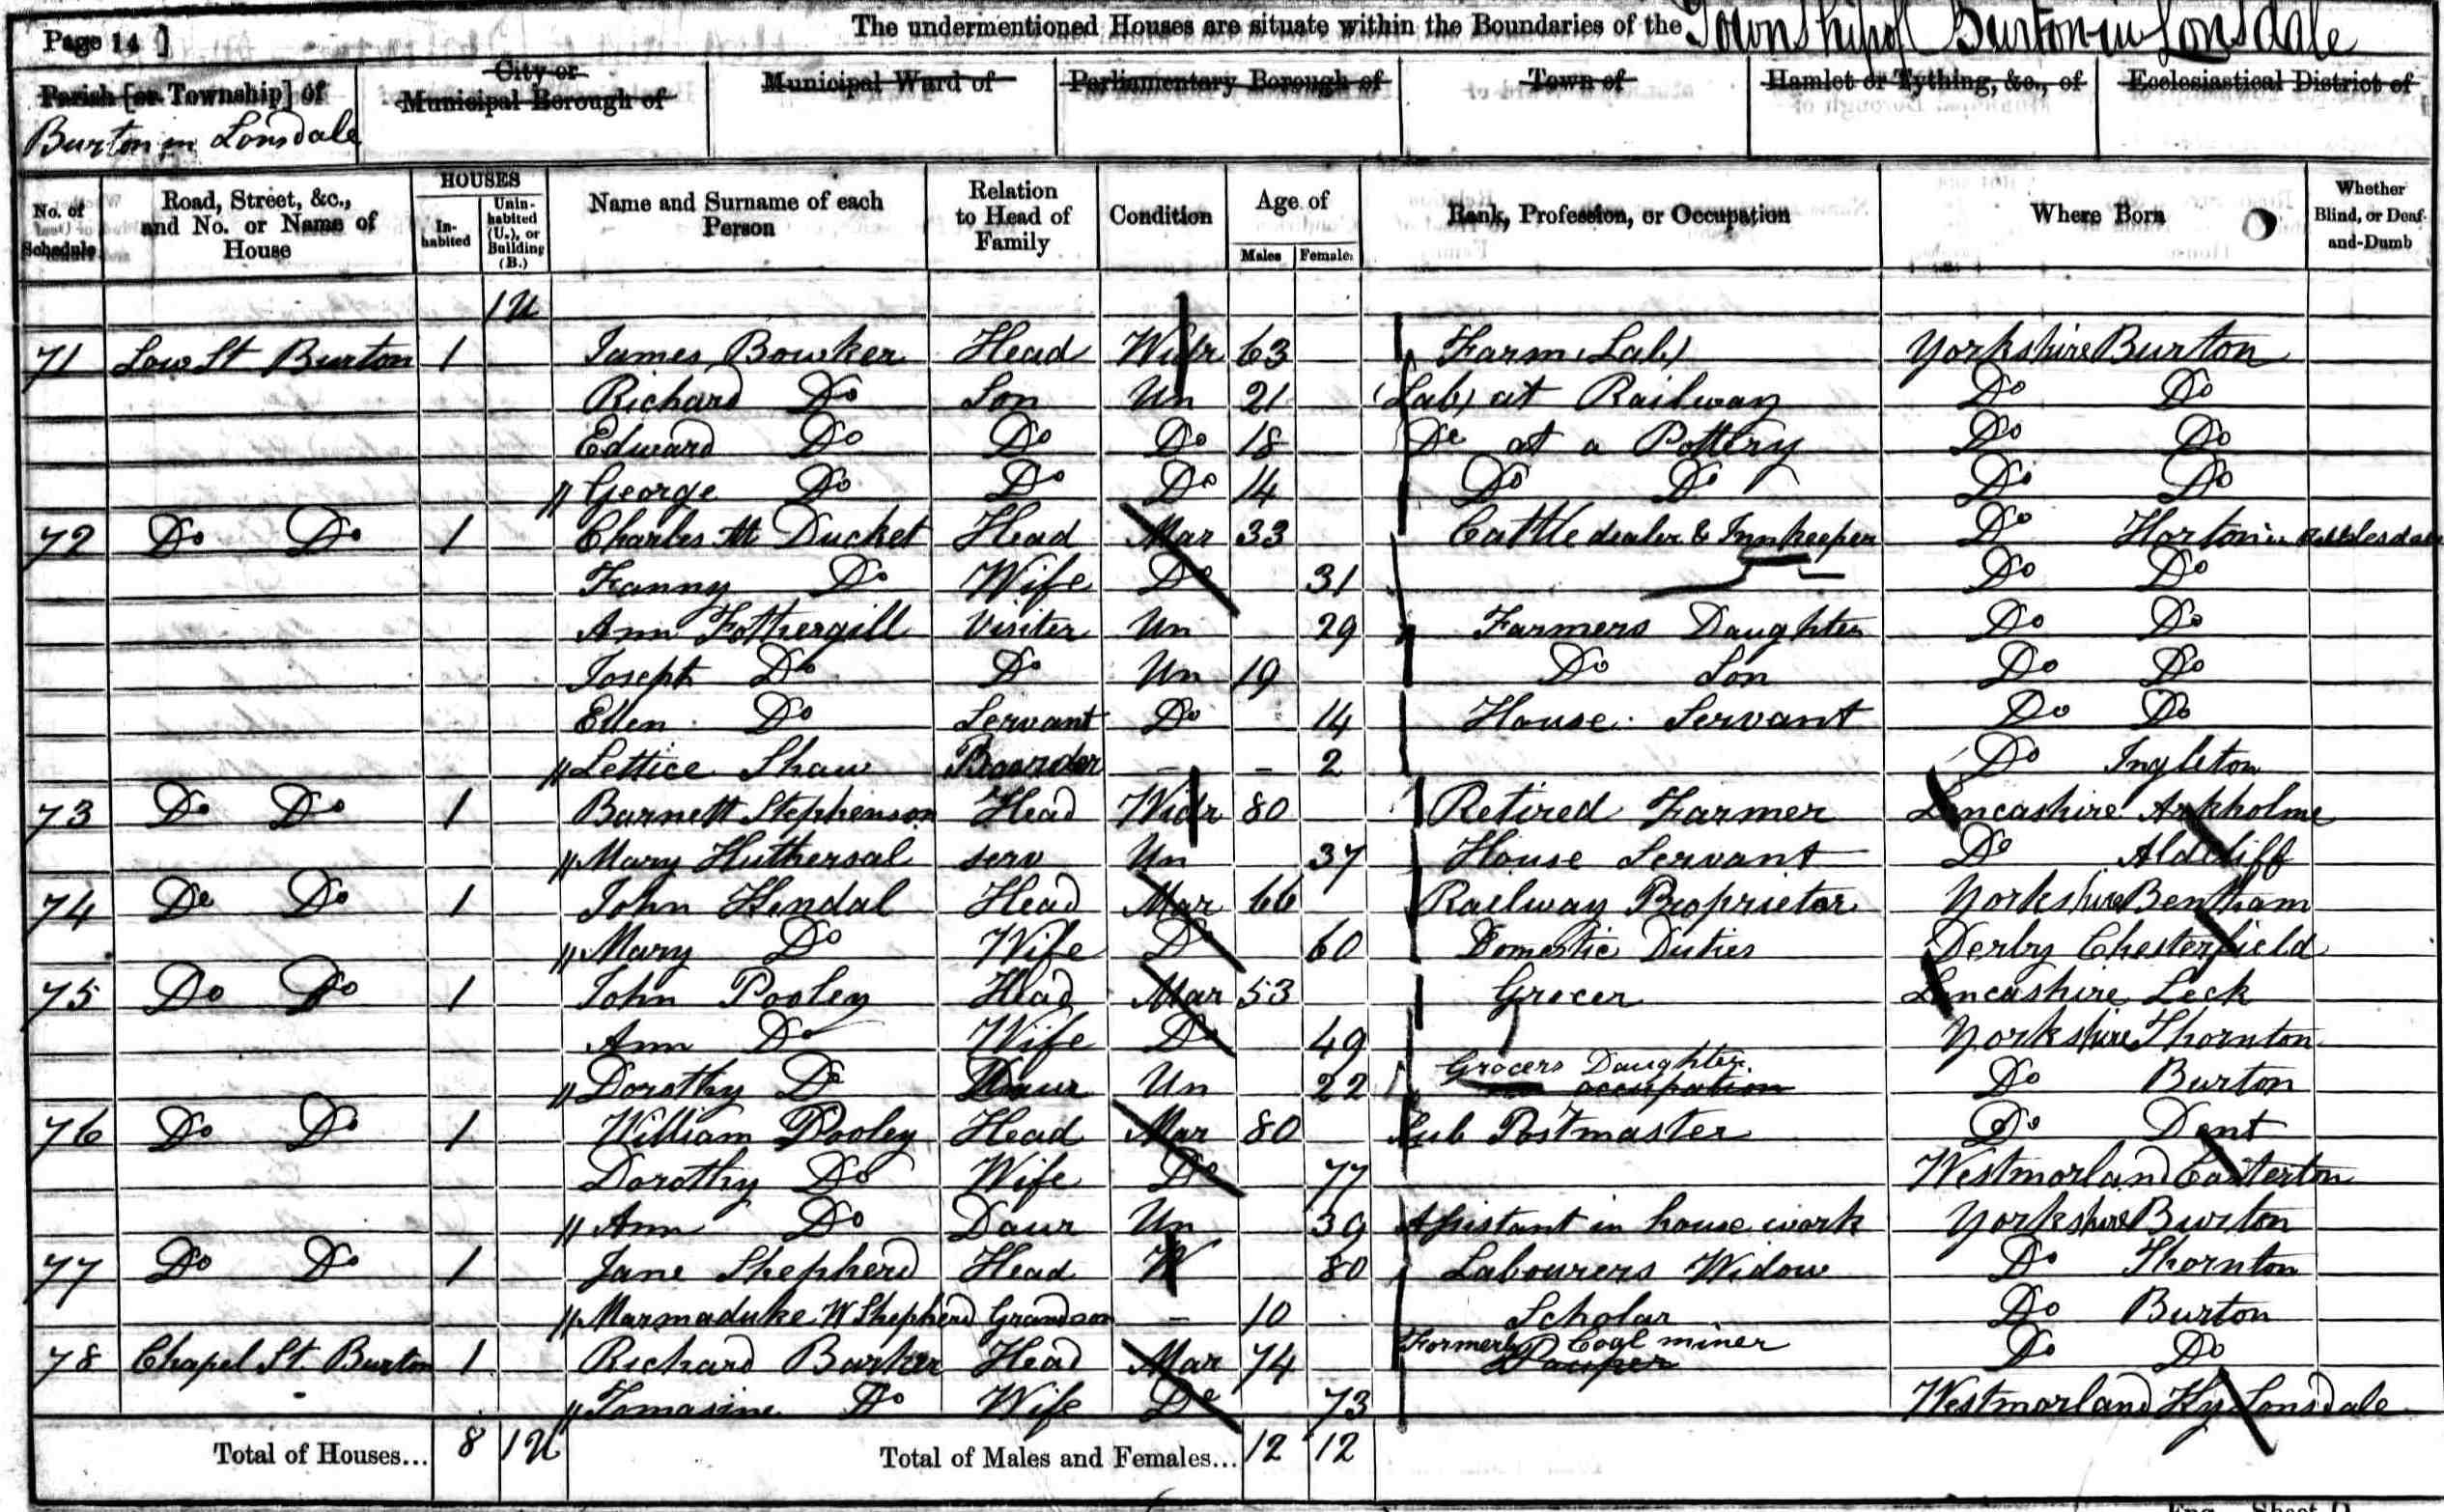 Page 14 ]
The undermentioned Houses are situate within the Boundaries of the Township of Burton in Lonsdale
Parish [or Township] of
Burton in Lonsdale
City or
Municipal Borough of
Municipal Ward of
Parliamentary Borough of
Town of
Hamlet or Tything, &c., of
Ecclesiastical District of
No. of
Schedule
Road, Street, &c.,
and No. or Name of
House
HOUSES
In-
habited
Unin-
habited
(U.), or
Building
(B.)
Name and Surname of each
Person
Relation
to Head of
Family
Condition
Age of
Males
Females
Rank, Profession, or Occupation
Where Born
Whether
Blind, or Deaf-
and-Dumb
1U
71 Low St Burton 1 James Bowker Head Widr 63 Farm (Lab) Yorkshire Burton
Richard Do Son Un 21 (Lab) at Railway Do Do
Edward Do Do Do 18 Do at a Pottery Do Do
// George Do Do Do 14 Do Do Do Do
72 Do Do 1 Charles M Ducket Head Mar 33 Cattle dealer & Innkeeper Do Horton in Ribblesdale
Fanny Do Wife Do 31 Do Do
Ann Fothergill Visiter Un 29 Farmers Daughter Do Do
Joseph Do Do Un 19 Do Son Do Do
Ellen Do Servant Do 14 House Servant Do Do
// Lettice Shaw Boarder - - 2 Do Ingleton
73 Do Do 1 Barnett Stephenson Head Widr 80 Retired Farmer Lancashire Arkholme
// Mary Huthersal serv Un 37 House Servant Do Aldcliff
74 Do Do 1 John Kendal Head Mar 66 Railway Proprietor Yorkshire Bentham
// Mary Do Wife Do 60 Domestic Duties Derby Chesterfield
75 Do Do 1 John Pooley Head Mar 53 Grocer Lancashire Leck
Ann Do Wife Do 49 Yorkshire Thornton
// Dorothy Do Daur Un 22 Grocers Daughter Do Burton
occupation
76 Do Do 1 William Pooley Head Mar 80 Sub Postmaster Do Dent
Dorothy Do Wife Do 77 Westmorland Casterton
// Ann Do Daur Un 39 Assistant in house work Yorkshire Burton
77 Do Do 1 Jane Shepherd Head W 80 Labourers Widow Do Thornton
// Marmaduke W Shepherd Grandson - 10 Scholar Do Burton
78 Chapel St Burton 1 Richard Barker Head Mar 74 Formerly Coal miner Do Do
Pauper
// Tomasine Do Wife Do 73 Westmorland Ky Lonsdale
Total of Houses... 8 1U Total of Males and Females... 12 12